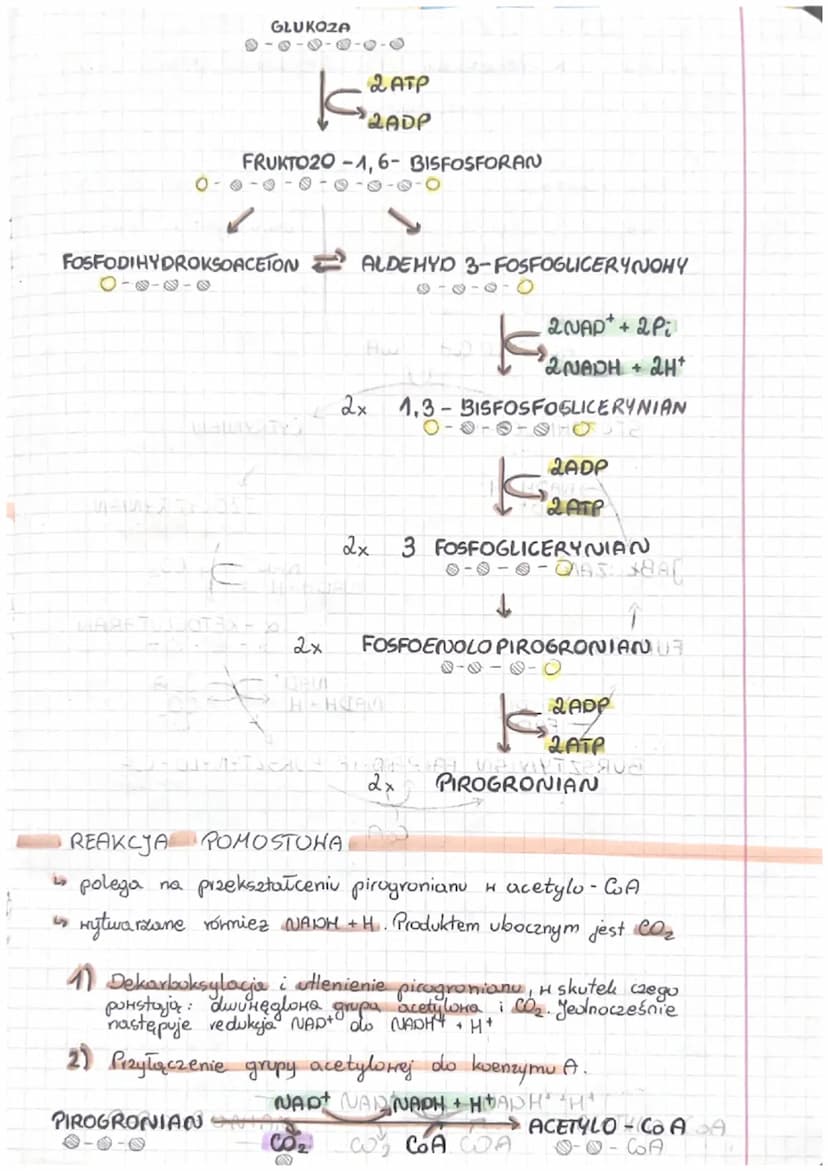 GLUKOZA
2 ATP
2ADP
FRUKTOZO - 1,6 - BISFOSFORAN
FOSFODIHYDROKSOACETON ⇌ ALDEHYD 3-FOSFOGLICERYNOWY
2NAD⁺ + 2Pi
2NADH + 2H⁺
2x 1,3 - BISFOSFOGLICERYNIAN
2ADP
2 ATP
2x 3 FOSFOGLICERYNIAN
2x FOSFOENOLOPIROGRONIAN
2ADP
2ATP
2x PIROGRONIAN
REAKCJA POMOSTOWA
↳ polega na przekształceniu pirogronianu w acetylo - CoA
↳ wytwarzane również NADH + H. Produktem ubocznym jest CO₂
1) Dekarboksylacja i utlenienie pirogronianu, w skutek czego
powstają: dwuwęglowa grupa acetylowa i CO₂. Jednocześnie
następuje redukcja NAD⁺ do NADH⁺ + H⁺
2) Przyłączenie grupy acetylowej do koenzymu A.
NAD⁺ NADH + H⁺
PIROGRONIAN → ACETYLO - CoA
CO₂ CoA - CoA